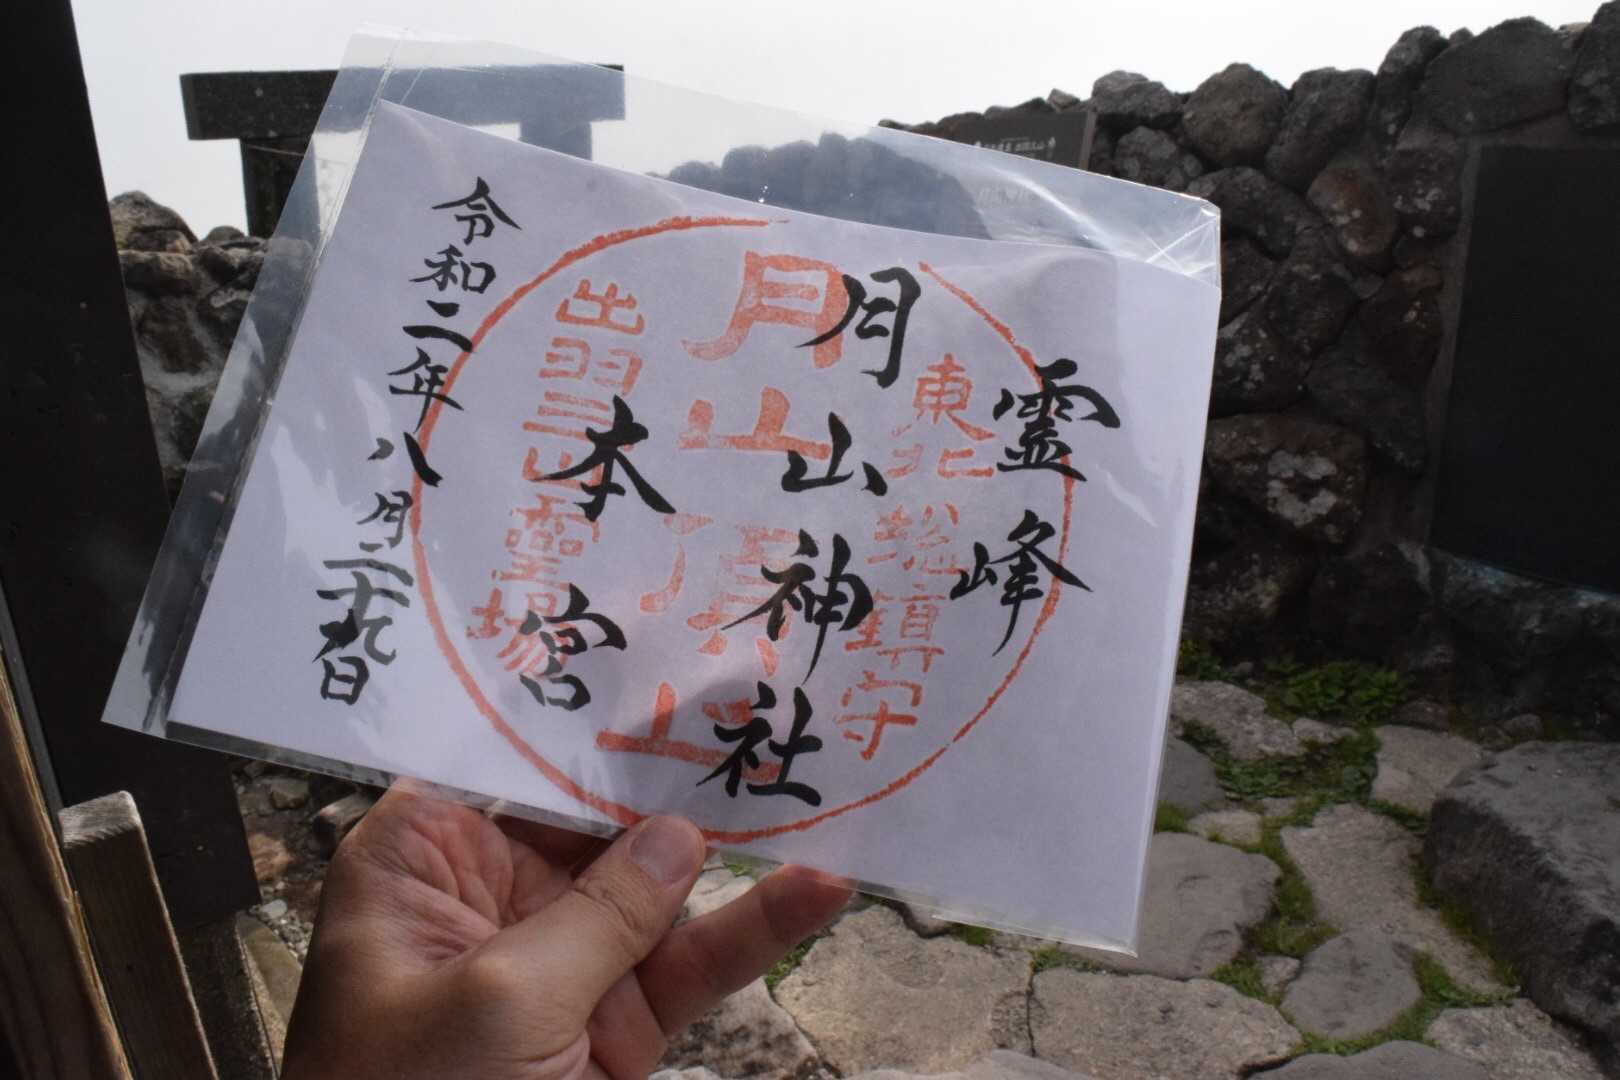 霊峰
月山神社
本宮
令和二年八月二十九日
東北総鎮守
月山頂上
出羽三山霊場